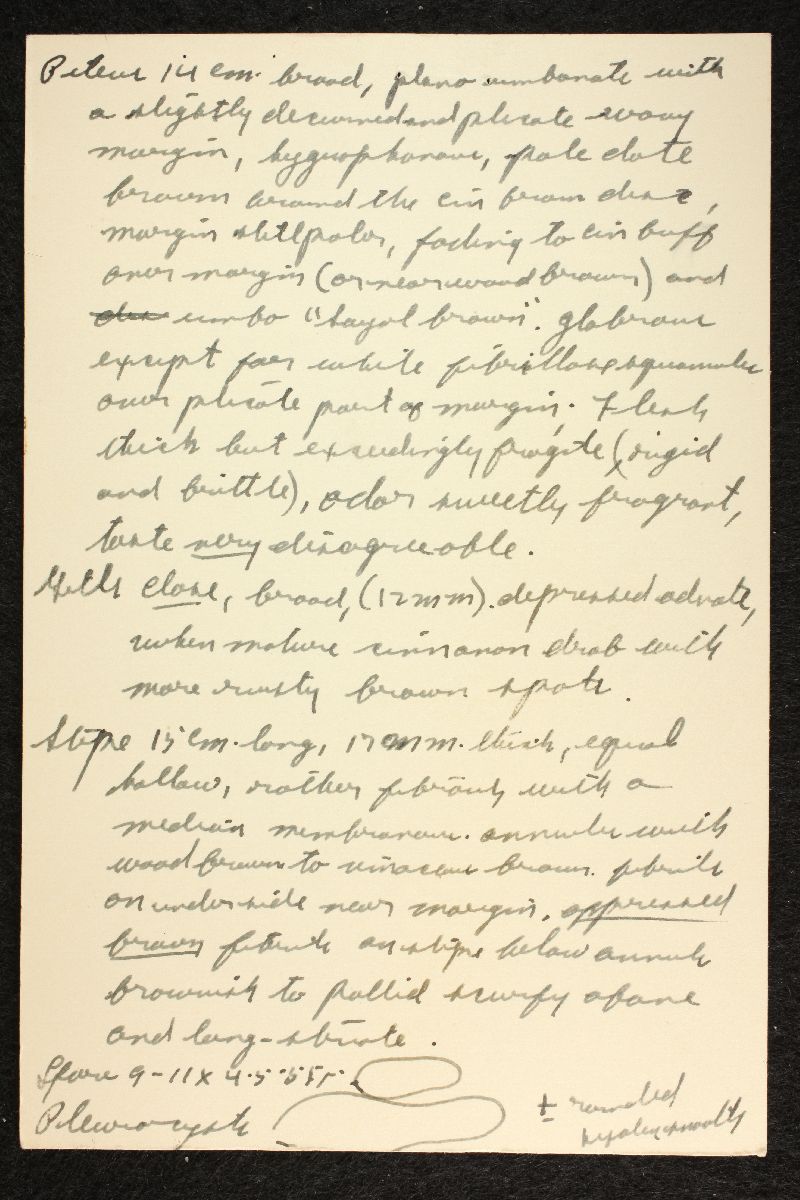 Pileus 14 cm. broad, plano umbonate with
a slightly decurved and plicate wavy
margin, hygrophanous, pale date
brown around the cin brown disc,
margin still paler, fading to cin buff
over margin (or near wood brown) and
umbo "sayal brown". glabrous
except for white fibrillose squamules
over plicate part of margin. Flesh
thick but exceedingly fragile (rigid
and brittle), odor sweetly fragrant,
taste very disagreeable.
Gills close, broad, (12 mm). depressed adnate,
when mature cinnamon drab with
more rusty brown spots.
Stipe 15 cm. long, mm. thick, equal
hollow, rather fibrous with a
median membranous. annulus with
wood brown to vinaceous brown. fibrils
on underside near margin. appressed
brown fibrils on stipe below annulus
brownish to pallid scurfy above
and long-striate.
Spore 9-11 x
Pleurocysts
± rounded